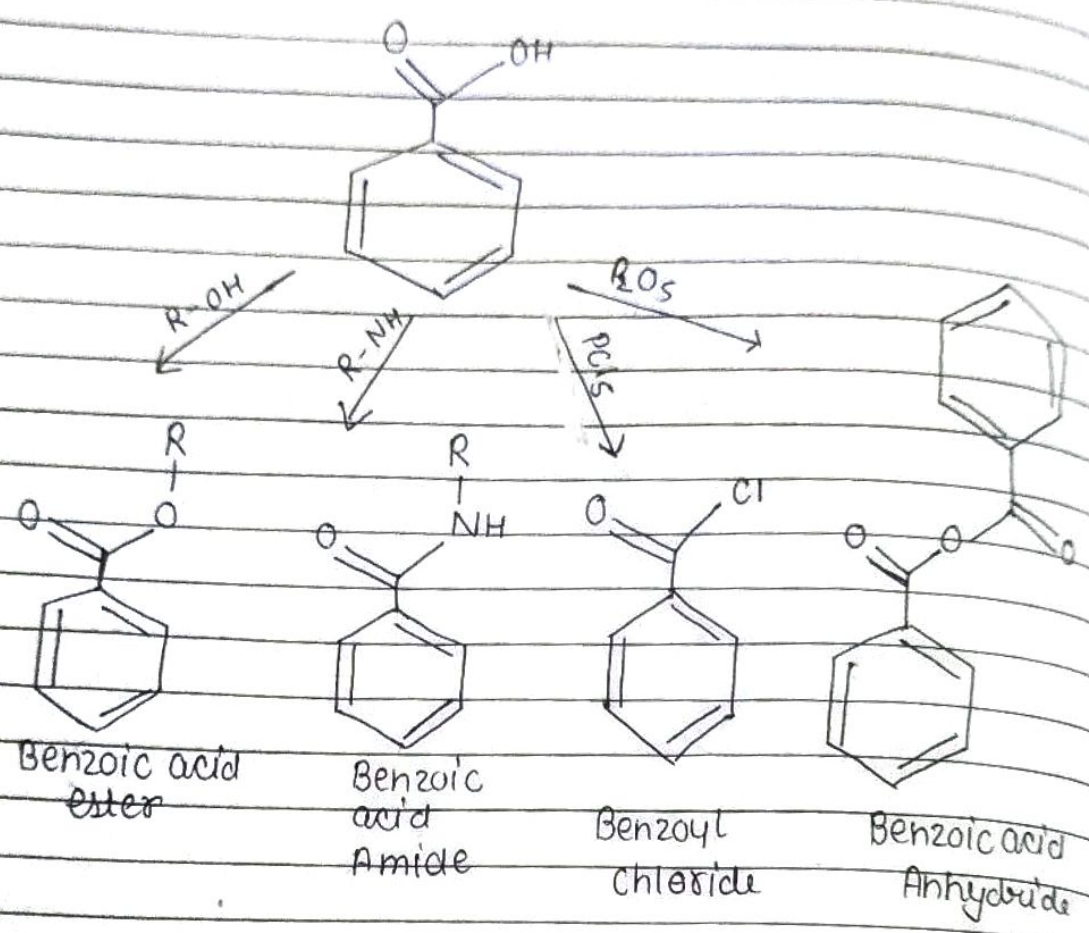 O
OH
R-OH
R-NH
PCl5
P2O5
R
O
O
R
O
NH
O
Cl
O
O
O
Benzoic acid
ester
Benzoic
acid
Amide
Benzoyl
Chloride
Benzoic acid
Anhydride